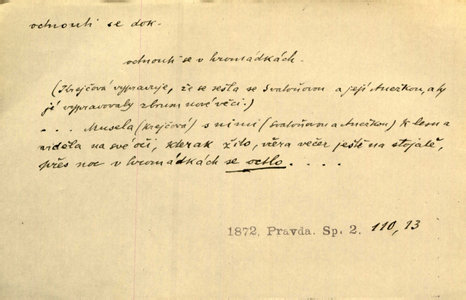 octnouti se dok.
octnouti se v hromádkách.
(Krejčová vypravuje, že se sešla se Svatoňovou a její Anežkou, aby
jí vypravovaly zbrusu nové věci.)
. . . Musela (Krejčová) s nimi (Svatoňovou a Anežkou) k lesu a
viděla na své oči, kterak žito, včera večer ještě na stojatě,
přes noc v hromádkách se octlo. . . .
1872, Pravda. Sp. 2. 110, 13